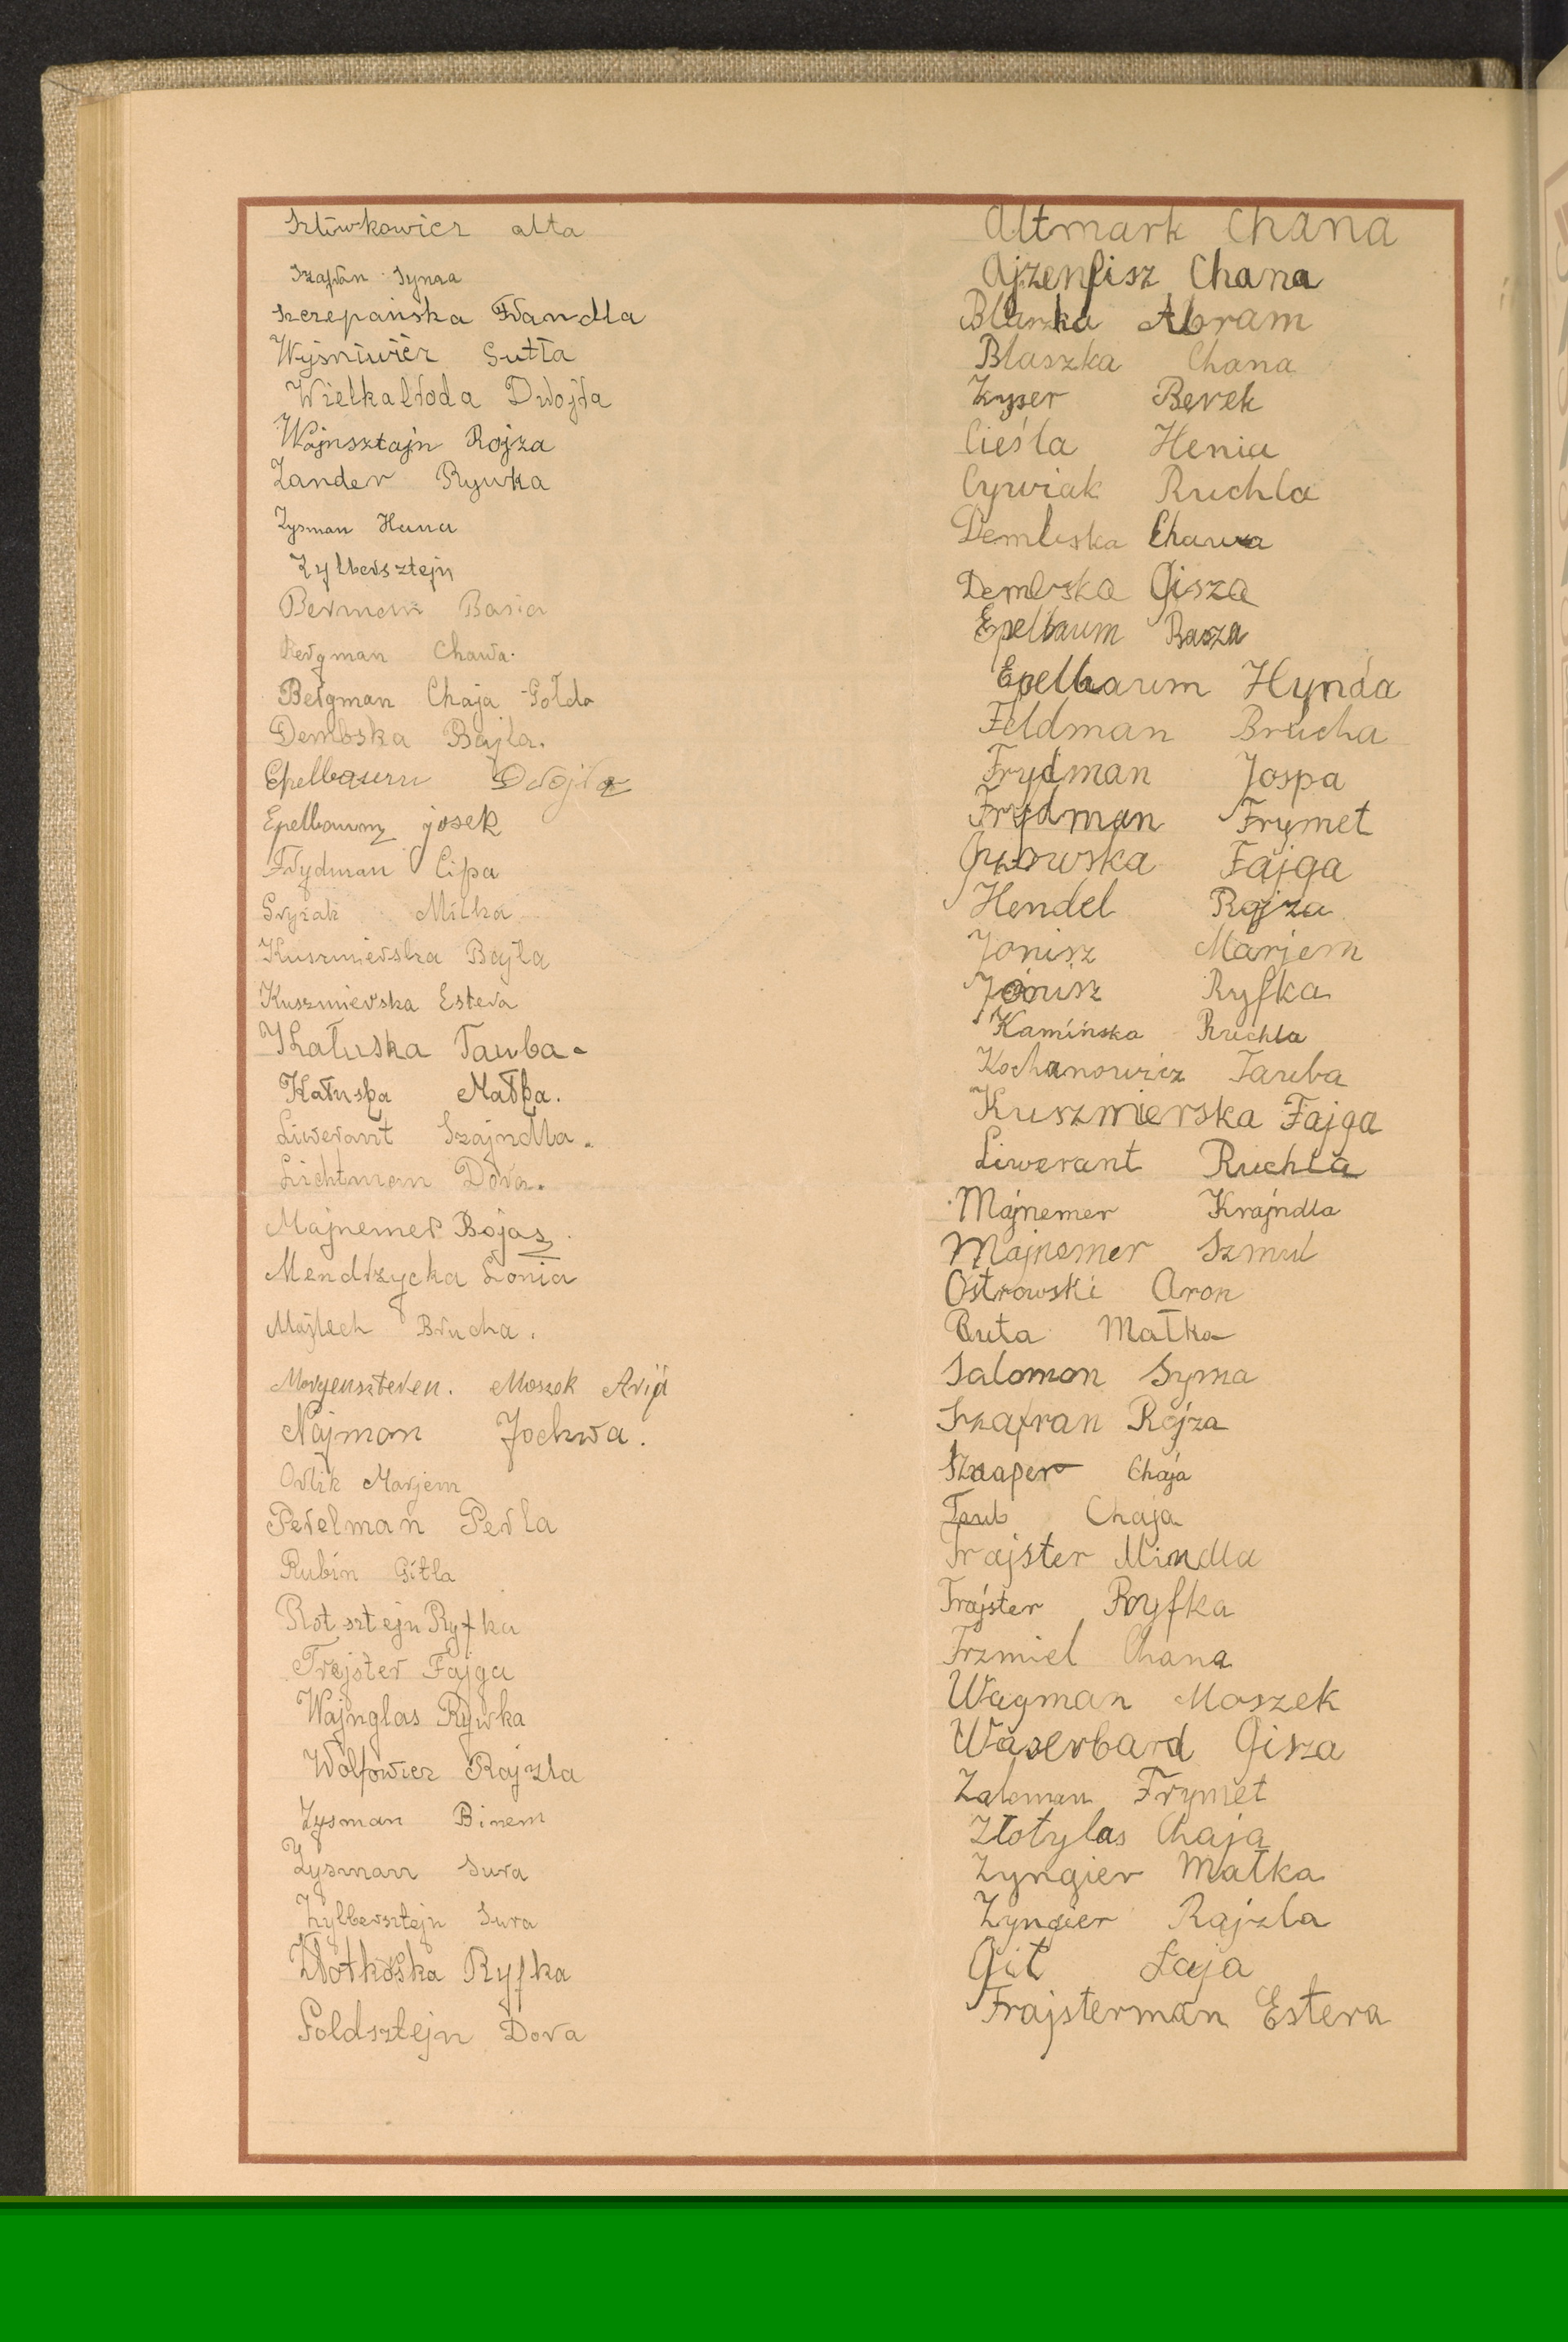 Szlówkowicz alta
Szafran Syma
Szczepańska Frandla
Wyśniwićr Gutta
Wielkabroda Dwojra
Wajnsztajn Rojza
Zander Rywka
Zysman Hana
Zylbersztejn
Berman Basia
Bergman Chawa.
Bergman Chaja Gołda
Dembska Bajla.
Epelbaum Dwojra
Epelbaum josek
Frydman Cipa
Gryzak Milka
Kuszmierska Bajla
Kuszmierska Estera
Kałuska Tauba
Kałuska Małka.
Liwerant Szajndla.
Lichtman Dora.
Majnemer Bojas
Mendrzycka Łonia
Majtech Brucha.
Morgenszteren. Moszek Arija
Najman Jochwa.
Orlik Marjem
Perelman Perla
Rubin Gitla
Rotsztejn Ryfka
Trejster Fajga
Wajnglas Rywka
Wolfowicz Rajzla
Zysman Binem
Zysman Sura
Zylbersztejn Sura
Złotkoska Ryfka
Goldsztejn Dora
Altmark Chana
Ajzenfisz Chana
Blaszka Abram
Blaszka Chana
Zyser Berek
Cieśla Henia
Cywiak Ruchla
Dembska Chawa
Dembska Gisza
Epelbaum Basza
Epelbaum Hynda
Feldman Brucha
Frydman Jospa
Frydman Frymet
Fajga
Hendel Rojza
Jonisz Marjem
Jonisz Ryfka
Kamińska Ruchla
Kochanowicz Tauba
Kuszmierska Fajga
Liwerant Ruchla
Majnemer Krajndla
Majnemer Szmul
Ostrowski Aron
Ruta Małka
Salomon Syma
Szafran Rojza
Sznaper Chaja
Taub Chaja
Trajster Mindla
Trajster Ryfka
Trzmiel Chana
Wagman Moszek
Waserbard Gisza
Zaleman Frymet
Złotylas Chaja
Zyngier Małka
Zyngier Rajzla
Git Łaja
Frajsterman Estera